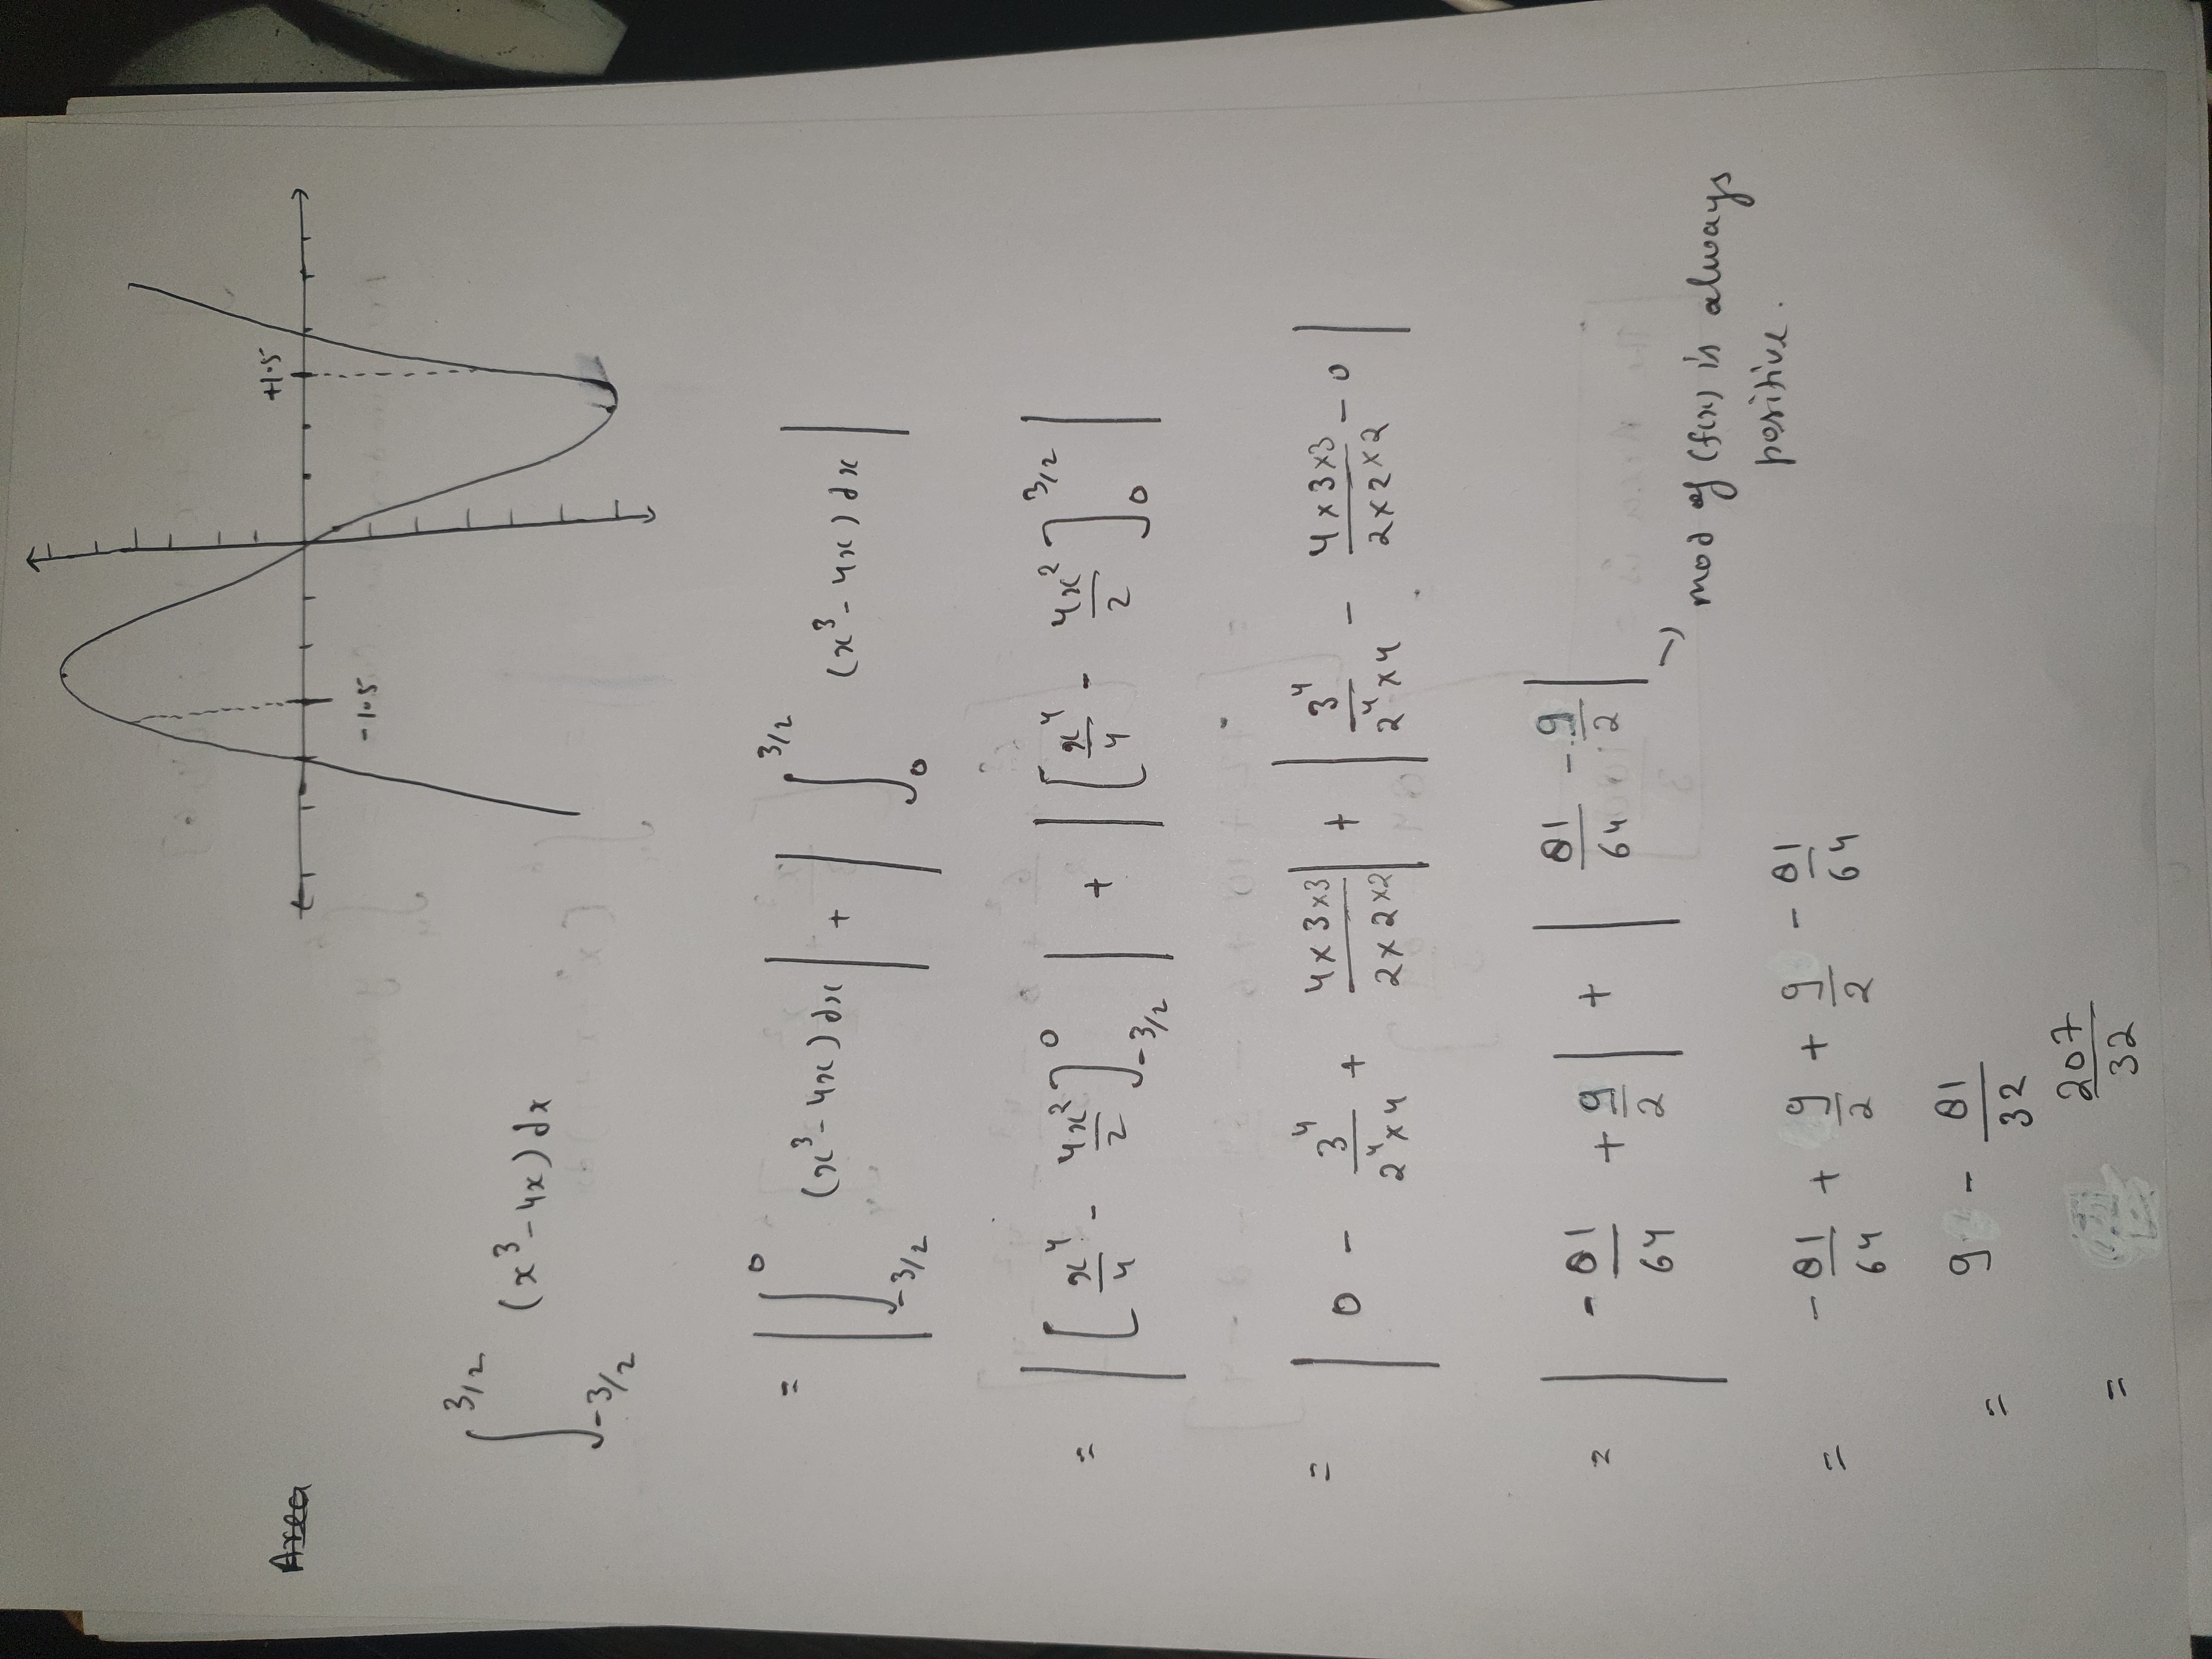 +1.5
-1.5
Area
∫_{-3/2}^{3/2} (x³ - 4x) dx
= | ∫_{-3/2}^{0} (x³ - 4x) dx | + | ∫_{0}^{3/2} (x³ - 4x) dx |
= | [x⁴/4 - 4x²/2]_{-3/2}^{0} | + | [x⁴/4 - 4x²/2]_{0}^{3/2} |
= | 0 - 3⁴/(2⁴×4) + (4×3×3)/(2×2×2) | + | 3⁴/(2⁴×4) - (4×3×3)/(2×2×2) - 0 |
= | -81/64 + 9/2 | + | 81/64 - 9/2 |
→ mod of (f(x) is always
positive.
= -81/64 + 9/2 + 9/2 - 81/64
= 9 - 81/32
= 207/32